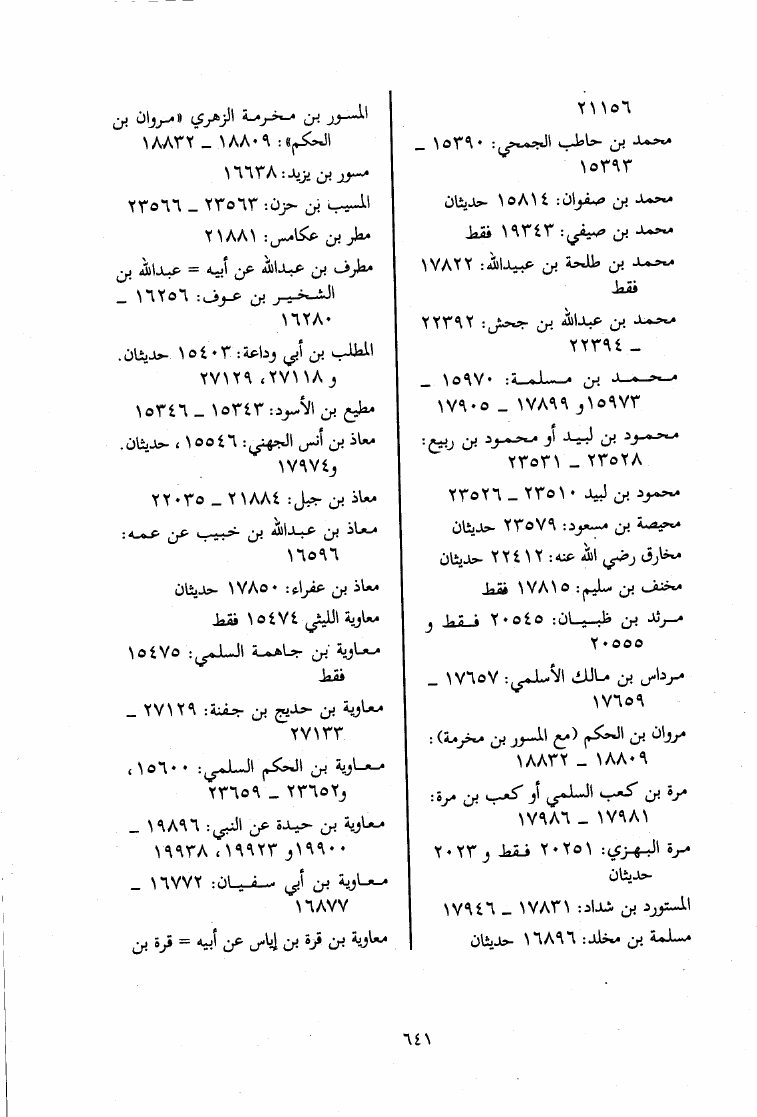 ٢١١٥٦
محمد بن حاطب الجمحي: ١٥٣٩٠ ـ
١٥٣٩٣
محمد بن صفوان: ١٥٨١٤ حديثان
محمد بن صيفي: ١٩٣٤٣ فقط
محمد بن طلحة بن عبيدالله: ١٧٨٢٢
فقط
محمد بن عبدالله بن جحش: ٢٢٣٩٢
ـ ٢٢٣٩٤
محمد بن مسلمة: ١٥٩٧٠ ـ
١٥٩٧٣ و ١٧٨٩٩ ـ ١٧٩٠٥
محمود بن لبيد أو محمود بن ربيع:
٢٣٥٢٨ ـ ٢٣٥٣١
محمود بن لبيد ٢٣٥١٠ ـ ٢٣٥٢٦
محيصة بن مسعود: ٢٣٥٧٩ حديثان
مخارق رضي الله عنه: ٢٢٤١٢ حديثان
مخنف بن سليم: ١٧٨١٥ فقط
مرثد بن ظبيان: ٢٠٥٤٥ فقط و
٢٠٥٥٥
مرداس بن مالك الأسلمي: ١٧٦٥٧ ـ
١٧٦٥٩
مروان بن الحكم (مع المسور بن مخرمة):
١٨٨٠٩ ـ ١٨٨٣٢
مرة بن كعب السلمي أو كعب بن مرة:
١٧٩٨١ ـ ١٧٩٨٦
مرة البهزي: ٢٠٢٥١ فقط و ٢٠٢٣
حديثان
المستورد بن شداد: ١٧٨٣١ ـ ١٧٩٤٦
مسلمة بن مخلد: ١٦٨٩٦ حديثان
المسور بن مخرمة الزهري «مروان بن
الحكم»: ١٨٨٠٩ ـ ١٨٨٣٢
مسور بن يزيد: ١٦٦٣٨
المسيب بن حزن: ٢٣٥٦٣ ـ ٢٣٥٦٦
مطر بن عكامس: ٢١٨٨١
مطرف بن عبدالله عن أبيه = عبدالله بن
الشخير بن عوف: ١٦٢٥٦ ـ
١٦٢٨٠
المطلب بن أبي وداعة: ١٥٤٠٣ حديثان.
و ٢٧١١٨، ٢٧١٢٩
مطيع بن الأسود: ١٥٣٤٣ ـ ١٥٣٤٦
معاذ بن أنس الجهني: ١٥٥٤٦، حديثان.
و١٧٩٧٤
معاذ بن جبل: ٢١٨٨٤ ـ ٢٢٠٣٥
معاذ بن عبدالله بن خبيب عن عمه:
١٦٥٩٦
معاذ بن عفراء: ١٧٨٥٠ حديثان
معاوية الليثي ١٥٤٧٤ فقط
معاوية بن جاهمة السلمي: ١٥٤٧٥
فقط
معاوية بن حديج بن جفنة: ٢٧١٢٩ ـ
٢٧١٣٣
معاوية بن الحكم السلمي: ١٥٦٠٠،
و٢٣٦٥٢ ـ ٢٣٦٥٩
معاوية بن حيدة عن النبي: ١٩٨٩٦ ـ
١٩٩٠٠ و١٩٩٢٣، ١٩٩٣٨
معاوية بن أبي سفيان: ١٦٧٧٢ ـ
١٦٨٧٧
معاوية بن قرة بن إياس عن أبيه = قرة بن
٦٤١